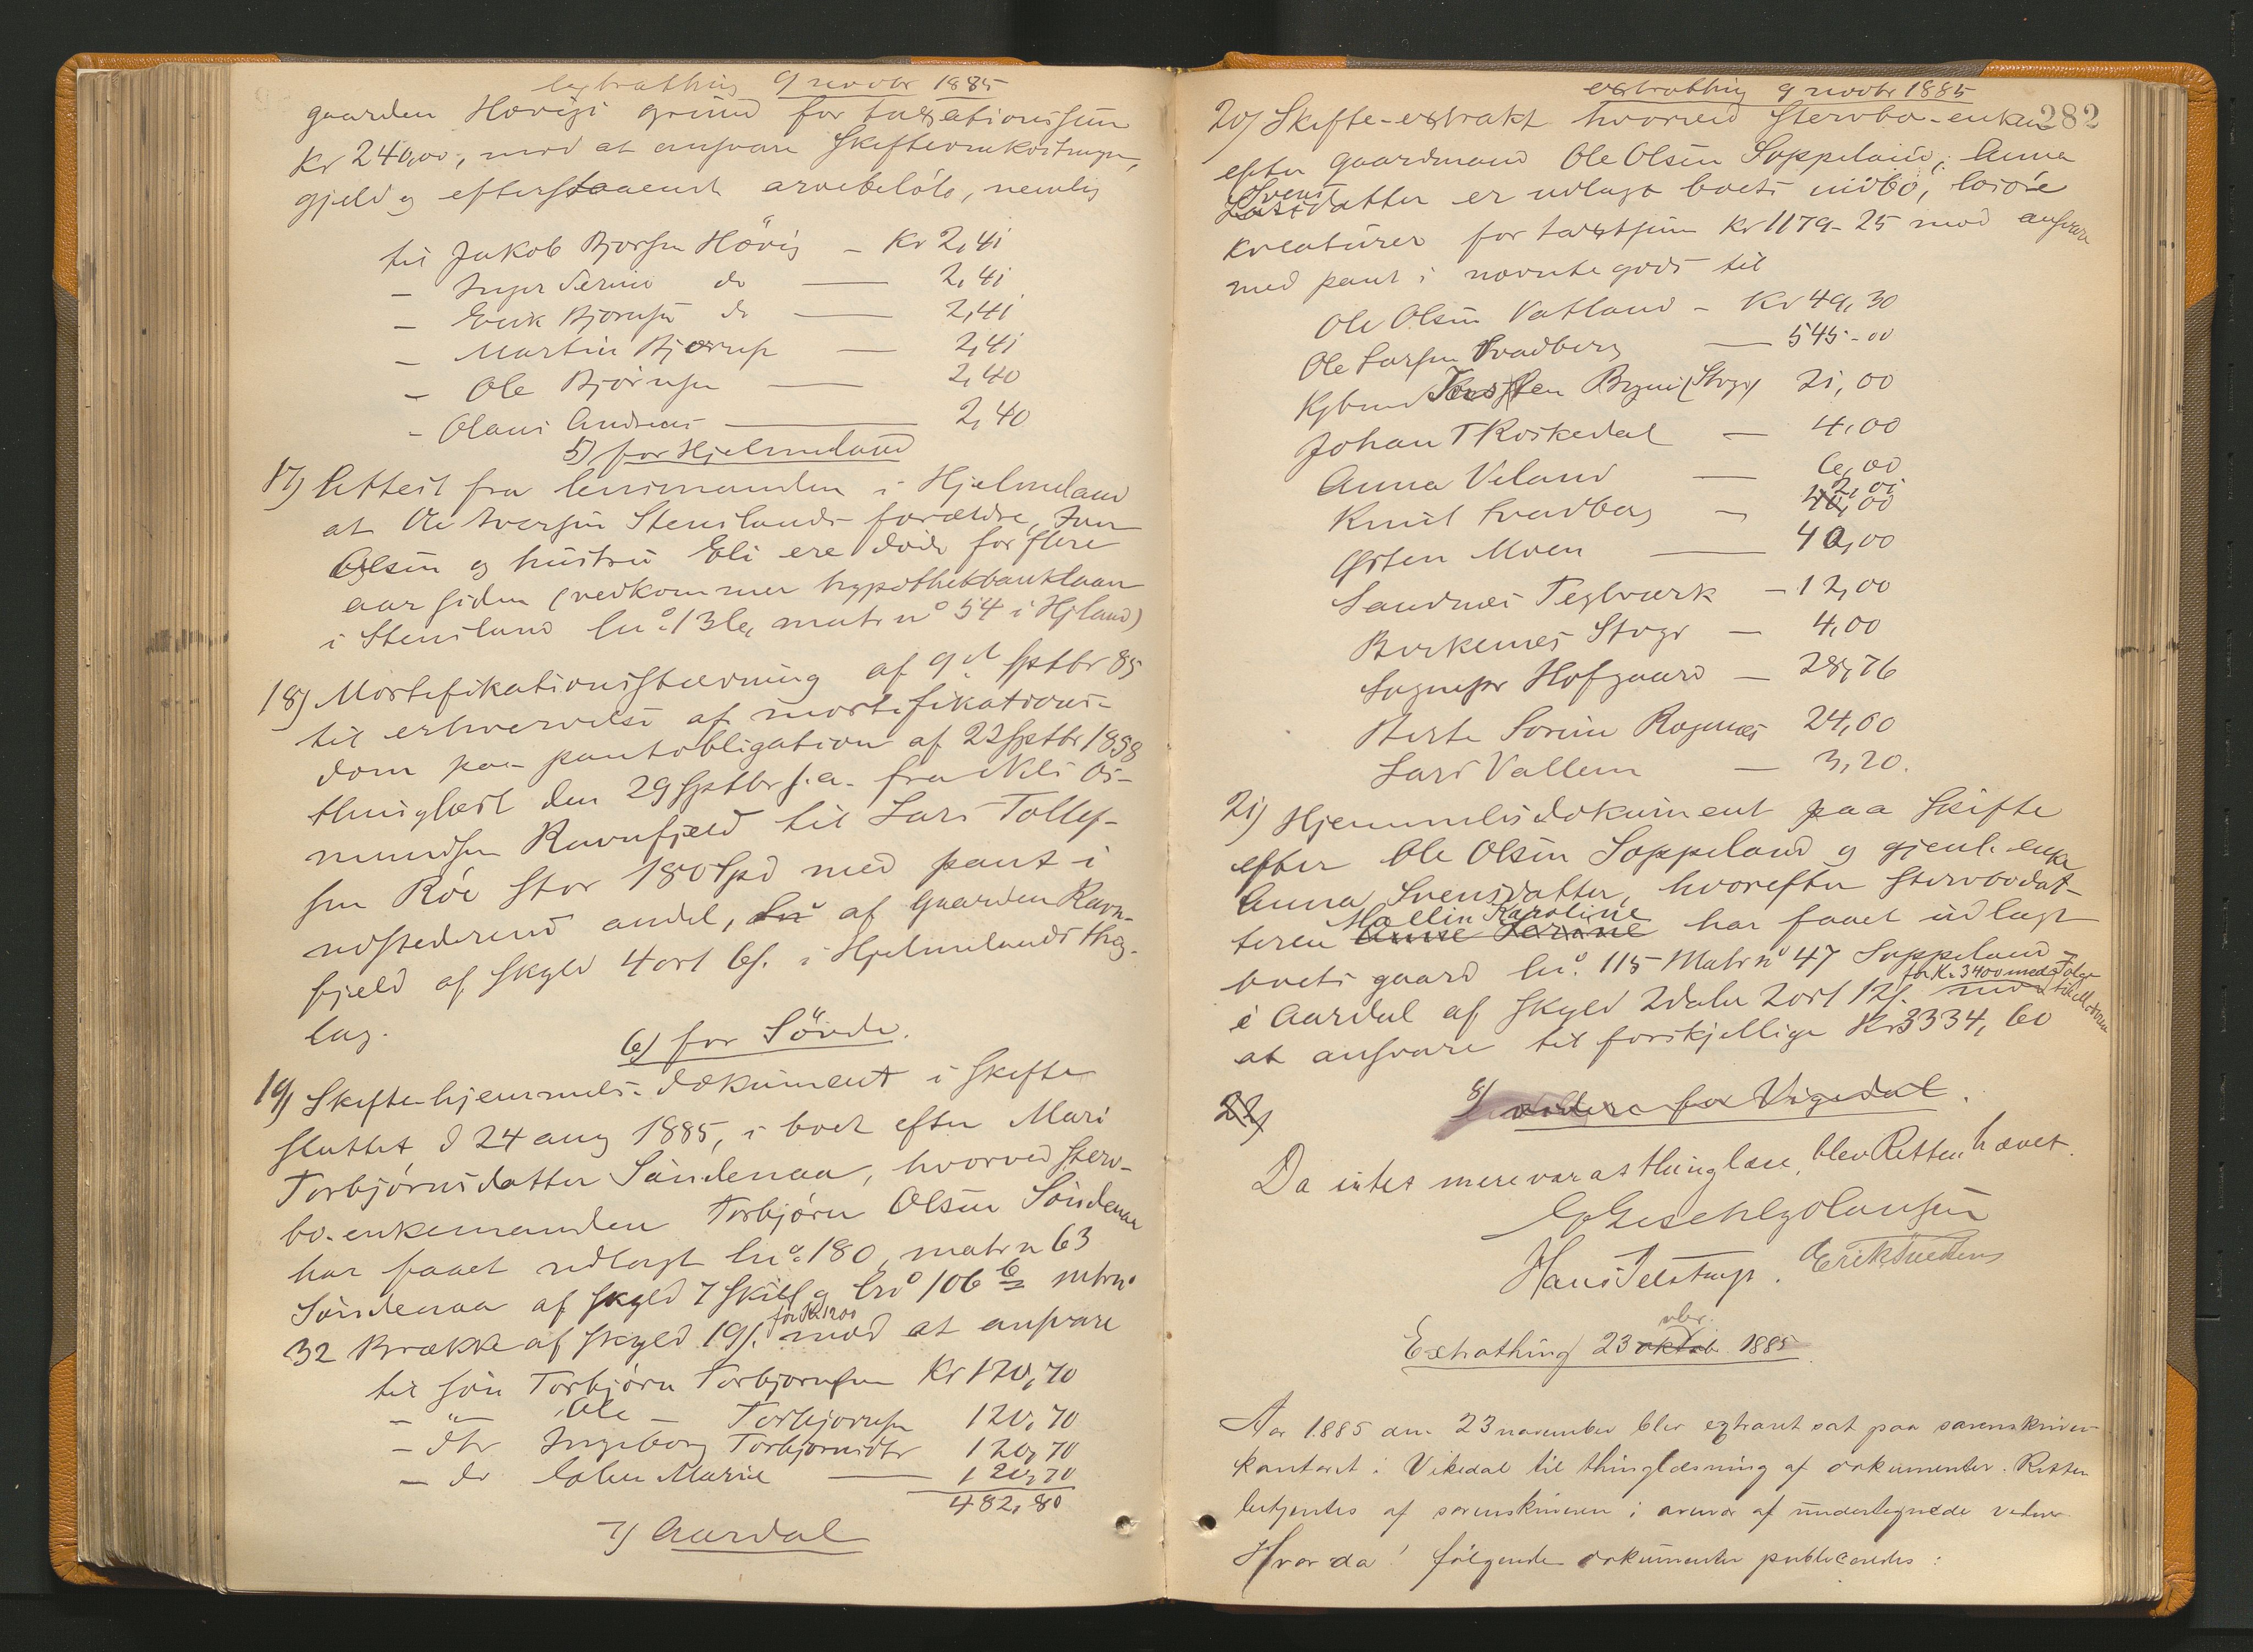 extrathing 9 novbr 1885
gaarden Hövigs grund for taxationssum
Kr 240,00, mod at ansvare skifteomkostninger,
gjeld og efterstaaende arvebelöb, nemlig
til Jakob Bjorsen Hövig – Kr 2,41
– Inger Serine do — 2,41
– Erik Bjornsen do — 2,41
– Martin Bjørnsen — 2,41
– Ole Bjørnsen — 2,40
– Olaus Andreas — 2,40
5) for Hjelmeland
17) Attest fra lensmanden i Hjelmeland
at Ole Iversen Stenslands forældre, Iver
Olsen og hustru Eli ere döde for flere
aar siden (vedkommer hypothekbanklaan
i Stensland lnº 136, matr nº 54 i Hjland)
18) Mortifikationsstævning af 9de sptbr 85
til erhvervelse af mortifikations-
dom paa pantobligation af 22 sptbr 1858
thinglæst den 29 sptbr s.a. fra Nils Os-
mundsen Ravnfjeld til Lars Tollef-
sen Röe stor 180 Spd med pant i
udstederens andel, Lnº af gaarden Ravn-
fjeld af skyld 4 ort 6 s. i Hjelmelands thing-
lag.
6) for Sövde.
19) Skiftehjemmels-dokument i skifte
sluttet d 24 aug 1885, i boet efter Mari
Torbjørnsdatter Söndenaa, hvorved sterv-
bo-enkemanden Torbjørn Olsen Söndenaa
har faaet udlagt lnº 180, matr n 63
Söndenaa af skyld 7 skill og lnº 106 b mtrnº
for Kr 1200
32 Brække af skyld 19 s. mod at ansvare
til sön Torbjørn Torbjornsen Kr 120,70
– " – Ole – Torbjornsen 120,70
– dtr Ingeborg Torbjornsdtr 120,70
– do Malene Marie — 120,70
482,80
7) Aardal
extrathing 9 novbr 1885
282
20) Skifte-extrakt hvorved stervbo-enken
efter gaardmand Ole Olsen Soppeland, Anna
Svens
Larsdatter er udlagt boets indbo, løsöre
kreaturer for taxtsum Kr 1179-25 mod ansvare
med pant i nævnte gods til
Ole Olsen Vatland – Kr 49,30
Ole Larsen Svadberg — 545-00
Kjbmd Torsten Bryni (Stvgr) 21,00
Johan T Roskedal — 4,00
Anna Veland — 6,00
2,01
Knut Svadberg – 40,00
Østen Moen — 40,00
Sandnæs Teglværk – 12,00
Birkenes Stvgr — 4,00
Sognepr Hofgaard – 28,76
Berte Sorine Ragnnæs 24,00
Lars Vallem — 3,20.
21) Hjemmelsdokument paa skifte
efter Ole Olsen Soppeland og gjenl. enke
Anna Svensdatter, hvorefter stervbodat-
Mallin Karoline
teren Anne Serine har faaet udlagt
boets gaard lnº 115 Matr nº 47 Soppeland
for Kr. 3400 med
i Aardal af skyld 2 daler 2 ort 12 s. mod
at ansvare til forskjellige Kr 3334,60
22) 8) videre for Vigedal.
Da intet mere var at thinglæse, blev Retten hævet.
Hans Jelstrup. Erik Svendsens
vbr.
Extrathing 23 oktob. 1885.
Aar 1885 den 23 november blev extraret sat paa sorenskriver-
kontoret i Vikedal til thinglæsning af dokumenter. Retten
betjentes af sorenskriveren i overvær af undertegnede vidner.
Hvorda! følgende dokumenter publiceredes: